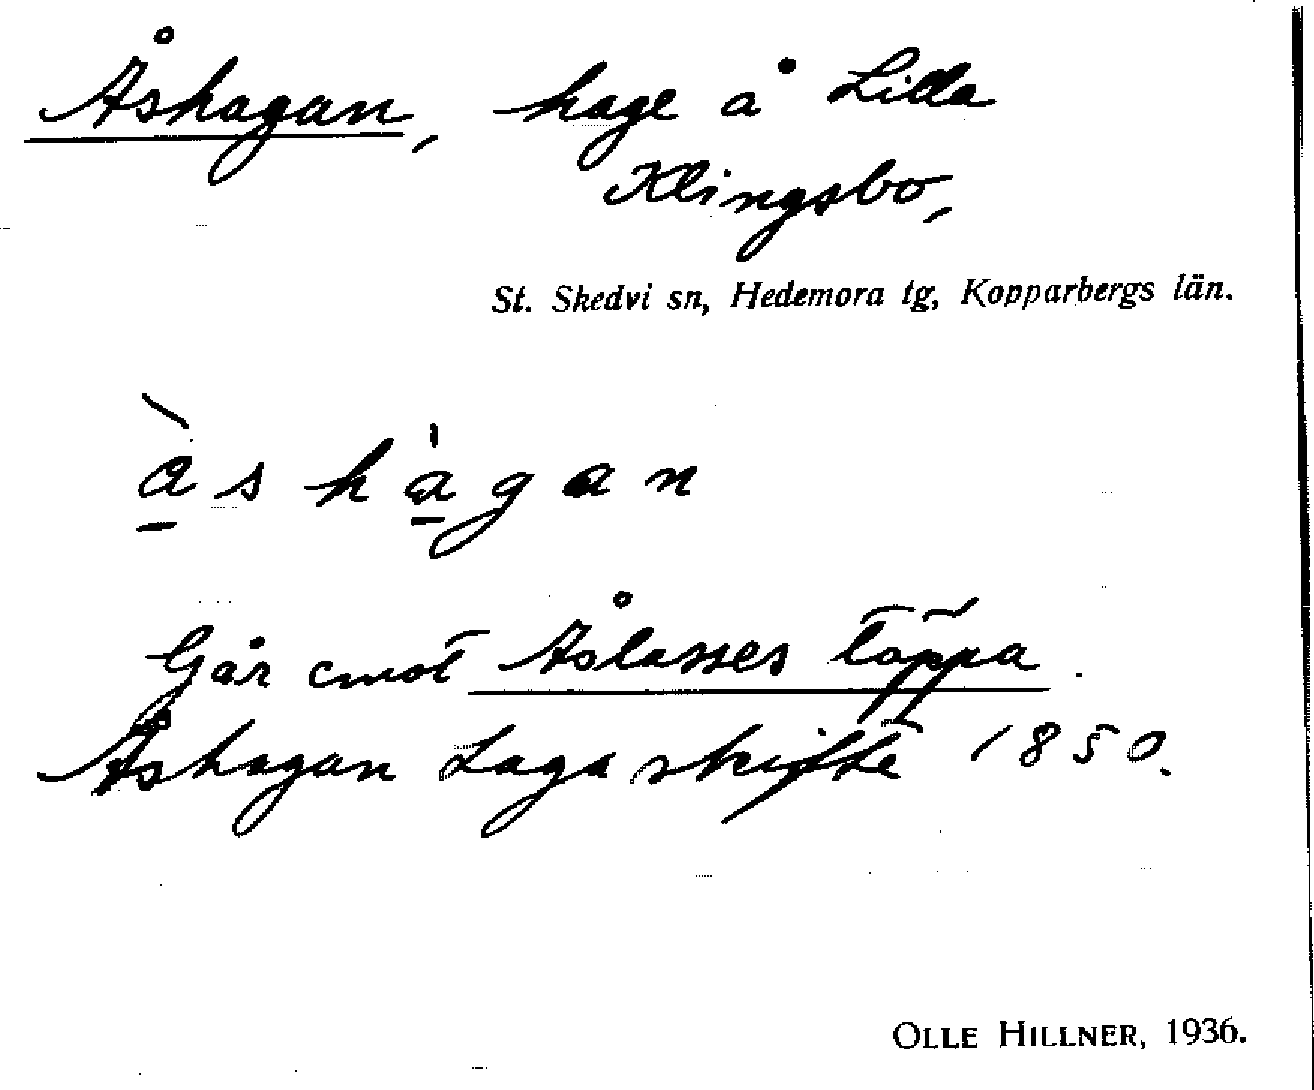 Åshagan, hage å Lilla
Klingsbo,
St. Skedvi sn, Hedemora tg, Kopparbergs län.
å̱̀s hа̱̀gan
Går emot Åslasses täppa.
Åshagan Laga skifte 1850.
OLLE HILLNER, 1936.